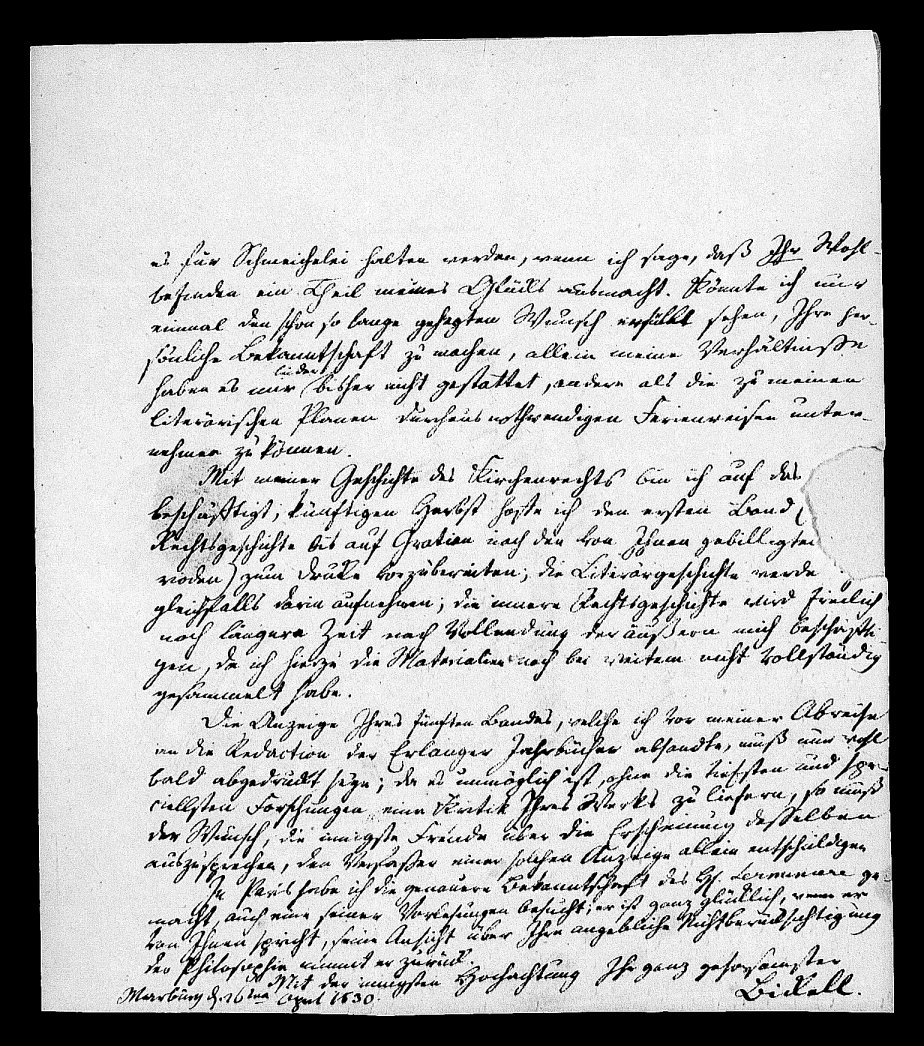 es für Schmeichelei halten werden, wenn ich sage, daß Ihr Wohl-
befinden ein Theil meines Glücks ausmacht. Könnte ich nur
einmal den schon so lange gehegten Wunsch erfüllt sehen, Ihre per-
sönliche Bekanntschaft zu machen, allein meine Verhältnisse
haben es mir leider bisher nicht gestattet, andere als die zu meinen
literärischen Planen durchaus nothwendigen Ferienreisen unter-
nehmen zu können.
Mit meiner Geschichte des Kirchenrechts bin ich auf das
beschäftigt; künftigen Herbst hoffe ich den ersten Band (
Rechtsgeschichte bis auf Gratian nach den von Ihnen gebilligten
rioden) zum Drucke vorzubereiten; die Literärgeschichte werde
gleichfalls darin aufnehmen; die innere Rechtsgeschichte wird freilich
noch längere Zeit nach Vollendung der äußern mich beschäfti-
gen, da ich hierzu die Materialien noch bei weitem nicht vollständig
gesammelt habe.
Die Anzeige Ihres fünften Bandes, welche ich vor meiner Abreise
an die Redaction der Erlanger Jahrbücher absandte, muß nun wohl
bald abgedruckt seyn; da es unmöglich ist, ohne die tiefsten und spe-
ciellsten Forschungen eine Kritik Ihres Werks zu liefern, so muß
der Wunsch, die innigste Freude über die Erscheinung desselben
auszusprechen, den Verfasser einer solchen Anzeige allein entschuldigen
In Paris habe ich die genauere Bekanntschaft des H. Lerminier ge-
macht auch eine seiner Vorlesungen besucht; er ist ganz glücklich, wenn er
von Ihnen spricht, seine Ansicht über Ihre angebliche Nichtberücksichtigung
der Philosophie nimmt er zurück.
Mit der innigsten Hochachtung Ihr ganz gehorsamster
Marburg d. 26ten April 1830. Bickell.